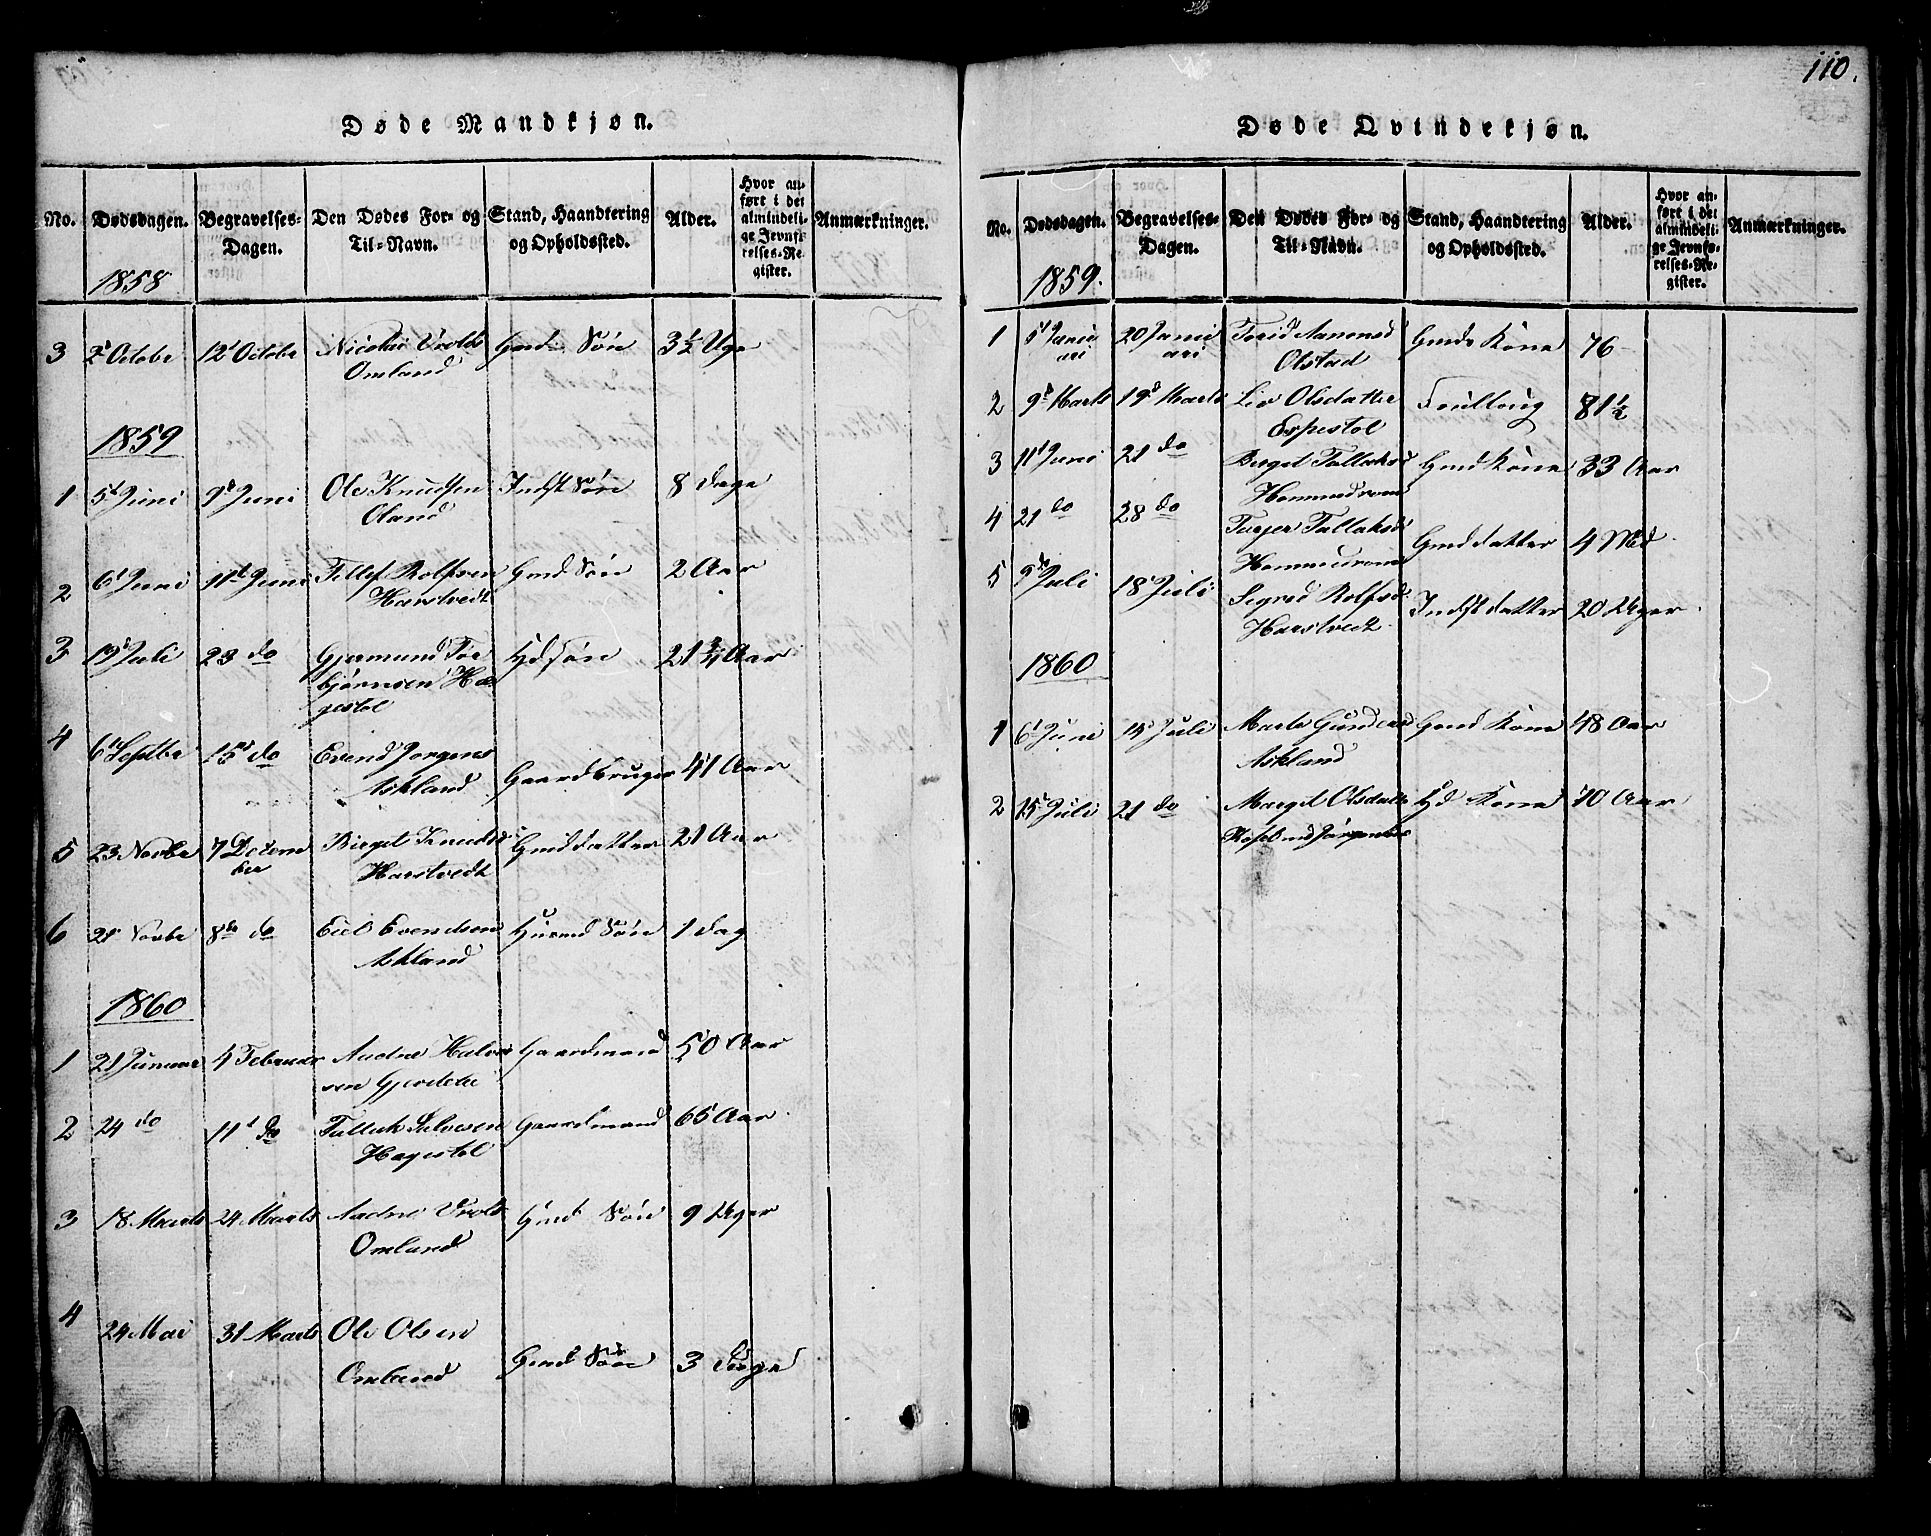 110.
Døde Mandkjøn.
No. Dødsdagen. Begravelses-Dagen. Den Dødes For- og Til-Navn. Stand, Haandtering og Opholdssted. Alder. Hvor anført i det almindelige Jevnførelses-Register. Anmærkninger.
1858
3 2d Octobr 12t Octobr Nicolai Vrolds Omland Gmds Søn 3½ Uge
1859
1 5t Juni 9d Juni Ole Knudsen Oland Indst Søn 8 Dage
2 6t Juni 11t Juni Tellef Rolfsen Harstvedt Gmd Søn 2 Aar
3 19d Juli 23 do Gjermund Torbjørnsen Hægestol Hd søn 21¾ Aar
4 6t Septbr 15d do Evend Jørgens Askland Gaardbruger 41 Aar
5 23 Novbr 7 December Birgit Knudsd Harstvedt Gmd datter 21 Aar
6 21 Novbr 8de do Eiel Evendsen Askland Huusmd Søn 1 dag
1860
1 21 Januar 4 Februar Aadne Halvorsen Gaardmand 50 Aar
2 24 do 11t do Tallak Salvesen Hægestol Gaardmand 65 Aar
3 18 Marts 24 Marts Aadne Vrolds Omland Gmd Søn 9 Uger
4 24 Mai 31 Marts Ole Olsen Omland Gmd Søn 3 Dage
Døde Qvindekjøn.
No. Dødsdagen. Begravelses-Dagen. Den Dødes For- og Til-Navn. Stand, Haandtering og Opholdssted. Alder. Hvor anført i det almindelige Jevnførelses-Register. Anmærkninger.
1859.
1 5t Januari 20 Januari Torid Aamunsd Olstad Gmds Kone 76
2 9d Marts 19d Marts Liv Olsdatter Espestøl 81½
3 11t Juni 21 do Birgit Tallaksd Hommedrom Gmd Kone 33 Aar
4 21 do 28 do Turjer Tallaksd Gmd datter 4 Md
5 9de Juli 18 Juli Sigrid Rolfsd Harstvedt Indst datter 20 Uger
1860
1 6t Juni 15 Juli Marte Gundersd Askland Gmd Kone 48 Aar
2 15t Juli 21 do Margit Olsdatter Hd Kone 70 Aar